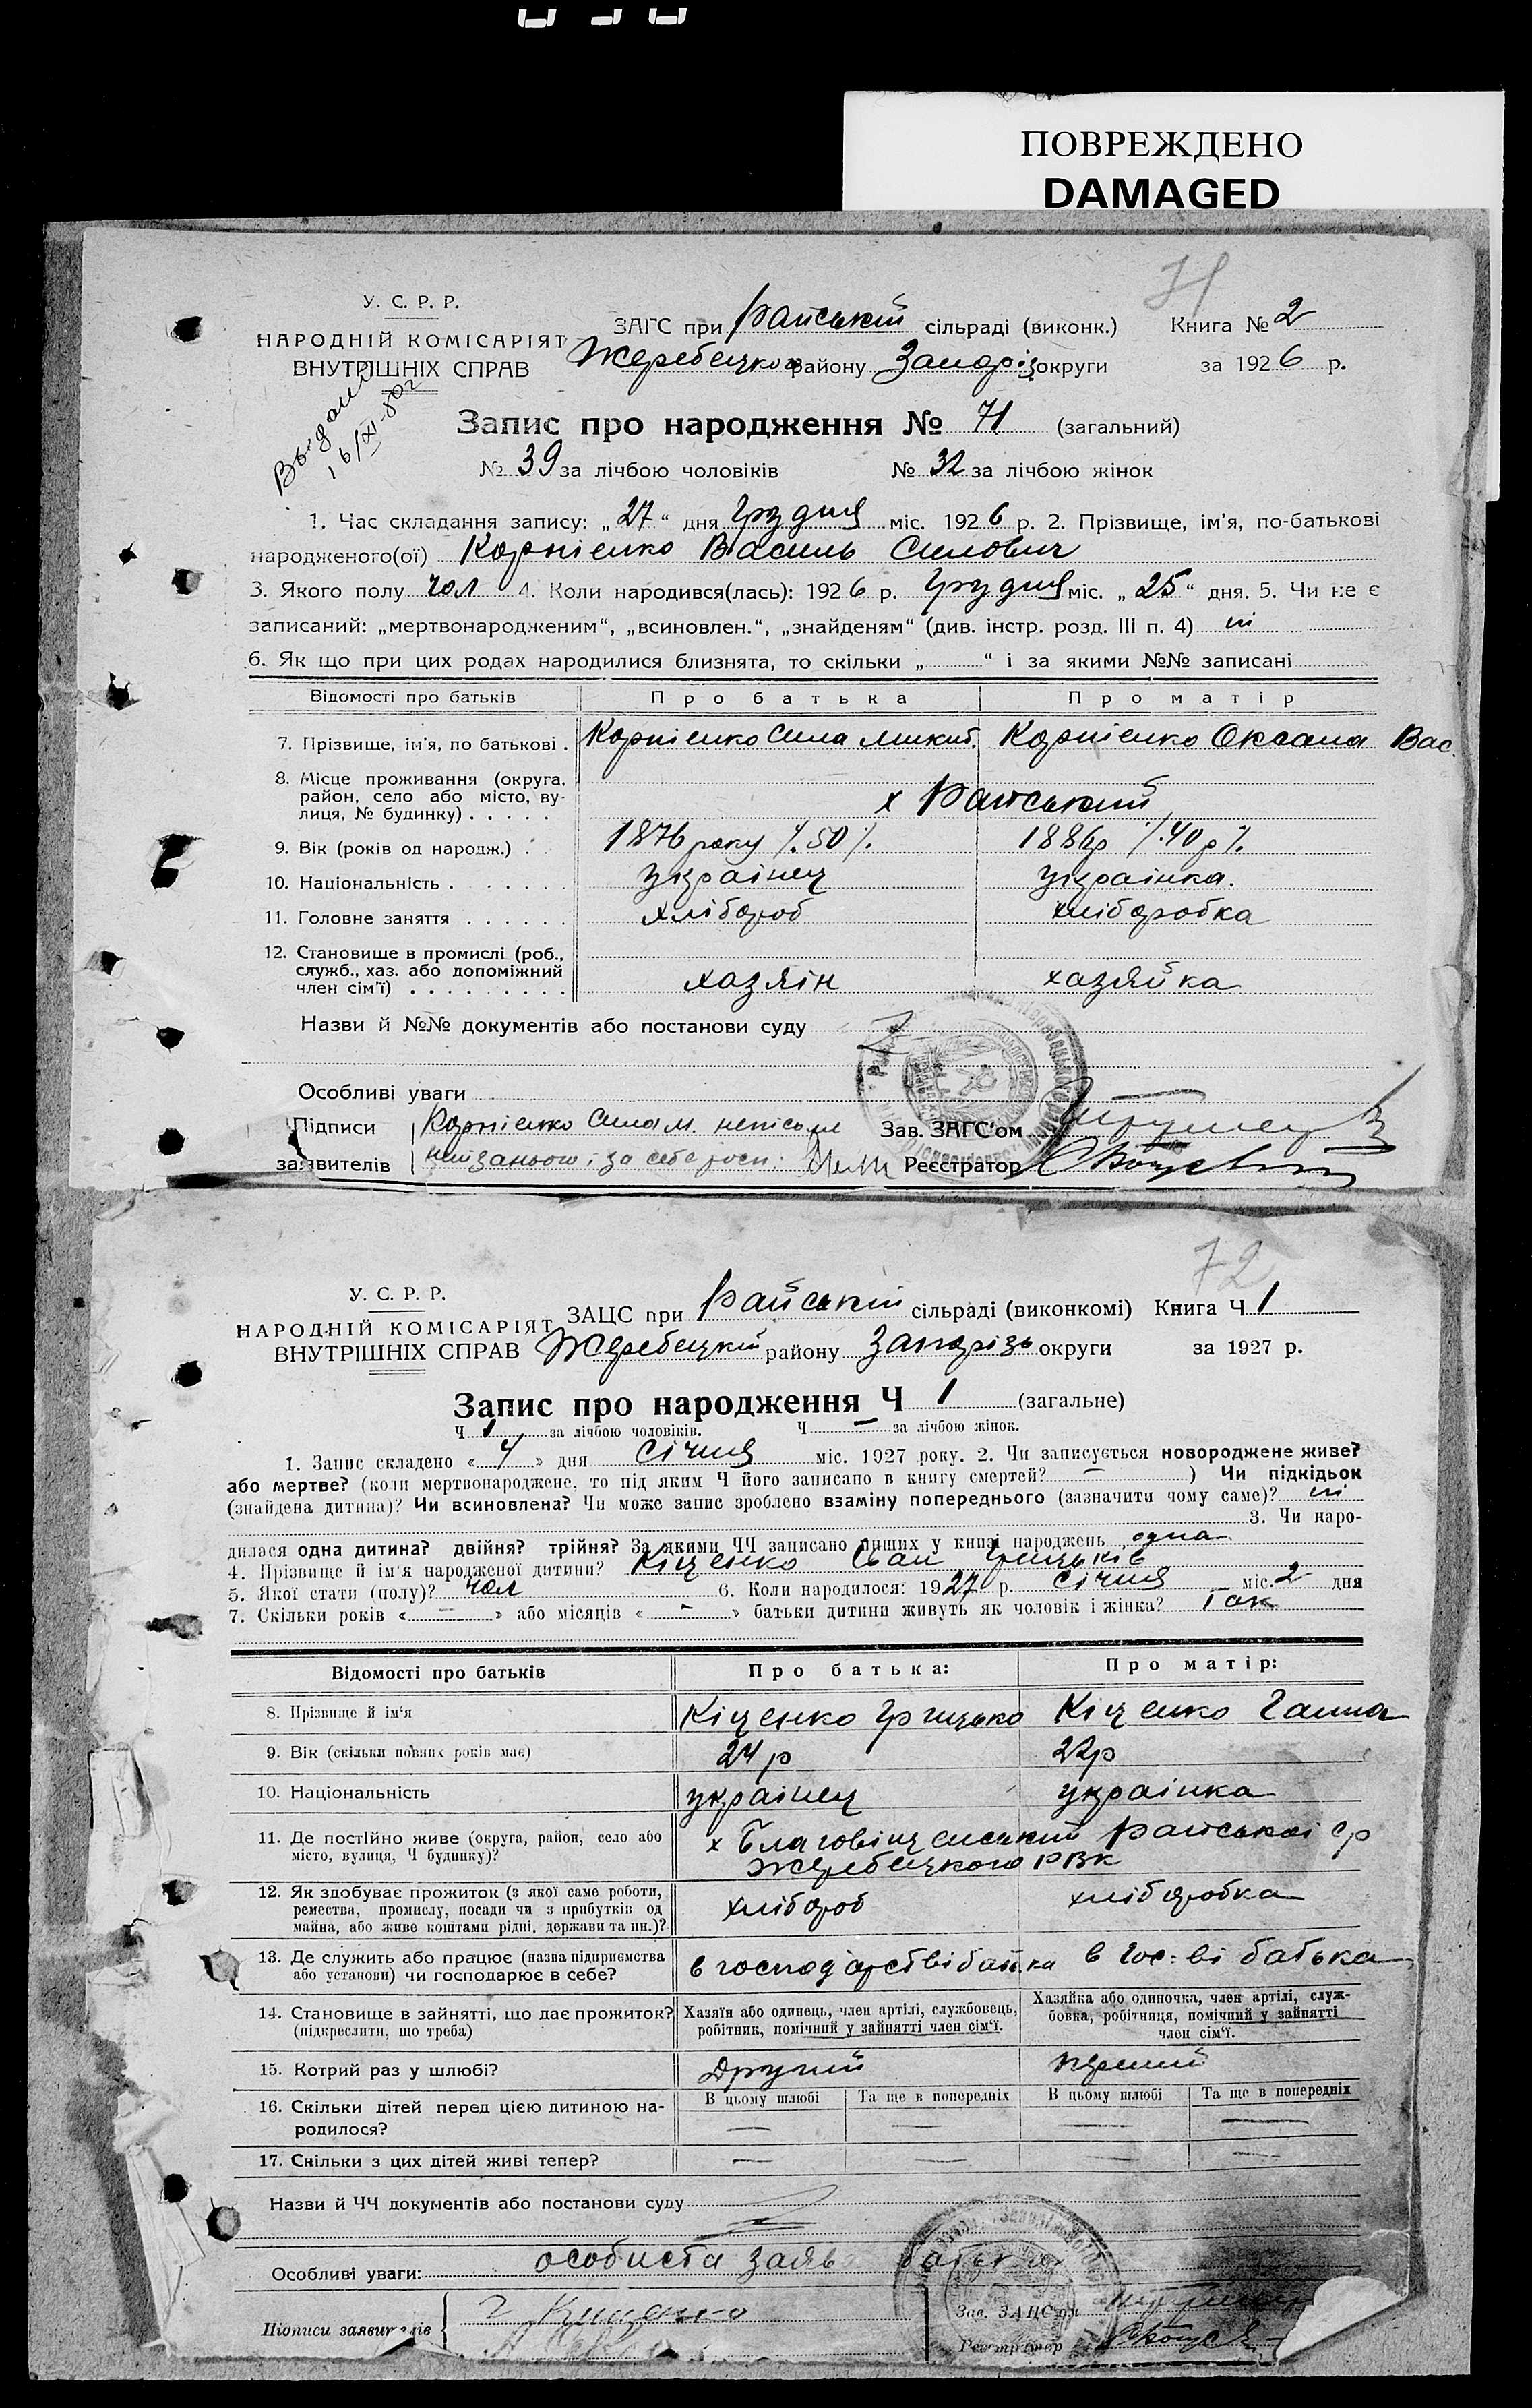 ПОВРЕЖДЕНО
DAMAGED
71
У. С. Р. Р.
НАРОДНІЙ КОМІСАРІЯТ
ВНУТРІШНІХ СПРАВ
ЗАГС при Райській сільраді (виконк.) Книга № 2
Жеребецког району Запоріз округи за 1926 р.
Выдан
16/XI-80г
Запис про народження № 71 (загальний)
№ 39 за лічбою чоловіків № 32 за лічбою жінок
1. Час складання запису: „27“ дня Грудня міс. 1926 р. 2. Прізвище, ім'я, по-батькові
народженого(ої) Корнієнко Василь Силович
3. Якого полу чол 4. Коли народився(лась): 1926 р. Грудня міс. „25“ дня. 5. Чи не є
записаний: „мертвонародженим“, „всиновлен.“, „знайденям“ (див. інстр. розд. III п. 4) ні
6. Як що при цих родах народилися близнята, то скільки „ “ і за якими №№ записані
Відомості про батьків Про батька Про матір
7. Прізвище, ім'я, по батькові . Корнієнко Сила Микит. Корнієнко Оксана Вас.
8. Місце проживання (округа,
район, село або місто, ву-
лиця, № будинку) . . . . . х Райський
9. Вік (років од народж.) . 1876 року /.50/. 1886р /.40 р/.
10. Національність . . . . . . . українец українка.
11. Головне заняття . . . . . . хлібороб хліборобка
12. Становище в промислі (роб.,
служб., хаз. або допоміжний
член сім'ї) . . . . . . . . . хазяін хазяйка
Назви й №№ документів або постанови суду
Особливі уваги
Підписи Корнієнко Сила М. неписьм Зав. ЗАГС'ом
заявителів Реєстратор
72
У. С. Р. Р.
НАРОДНІЙ КОМІСАРІЯТ
ВНУТРІШНІХ СПРАВ
ЗАЦС при Райській сільраді (виконкомі) Книга Ч 1
Жеребецкій району Запорізь округи за 1927 р.
Запис про народження Ч 1 (загальне)
Ч 1 за лічбою чоловіків. Ч — за лічбою жінок.
1. Запис складено «4» дня Січня міс. 1927 року. 2. Чи записується новороджене живе?
або мертве? (коли мертвонароджене, то під яким Ч його записано в книгу смертей? — ) Чи підкідьок
(знайдена дитина)? Чи всиновлена? Чи може запис зроблено взаміну попереднього (зазначити чому саме)? ні
3. Чи наро-
дилася одна дитина? двійня? трійня? За якими ЧЧ записано инших у книзі народжень одна
4. Прізвище й ім'я народженої дитини? Кіценко Іван Грицьків
5. Якої стати (полу)? чол 6. Коли народилося: 1927 р. Січня міс. 2 дня
7. Скільки років «—» або місяців «-» батьки дитини живуть як чоловік і жінка? Так
Відомості про батьків Про батька: Про матір:
8. Прізвище й ім'я Кіценко Грицько Кіценко Ганна
9. Вік (скільки повних років має) 24 р 22р
10. Національність українец українка
11. Де постійно живе (округа, район, село або
місто, вулиця, Ч будинку)? х Благовіщенський Райської ср
Жеребецкого РВК
12. Як здобуває прожиток (з якої саме роботи,
ремества, промислу, посади чи з прибутків од
майна, або живе коштами рідні, держави та ин.)? хлібороб хліборобка
13. Де служить або працює (назва підприємства
або установи) чи господарює в себе? в господарстві батька в гос:ві батька
14. Становище в зайнятті, що дає прожиток?
(підкреслити, що треба)
Хазяїн або одинець, член артілі, службовець,
робітник, помічний у зайнятті член сім'ї.
Хазяйка або одиночка, член артілі, служ-
бовка, робітниця, помічний у зайнятті
член сім'ї.
15. Котрий раз у шлюбі? Другий перший
16. Скільки дітей перед цією дитиною на-
родилося?
В цьому шлюбі Та ще в попередніх В цьому шлюбі Та ще в попередніх
— — — —
17. Скільки з цих дітей живі тепер? — — — —
Назви й ЧЧ документів або постанови суду
Особливі уваги: особиста заява батька
Підписи заявителів Г Кищенко Зав. ЗАЦС'ом
Реєстратор